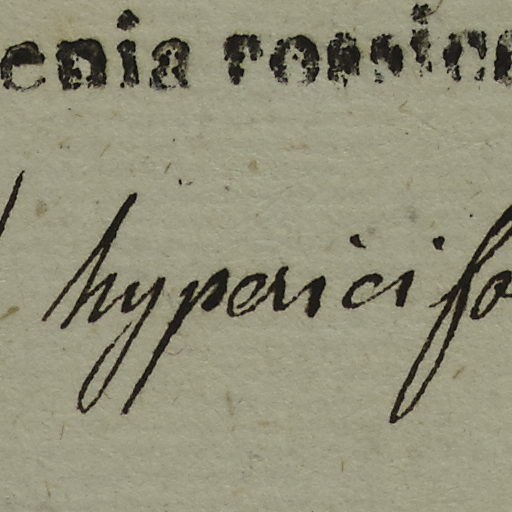 enia rossic
hyperici fo